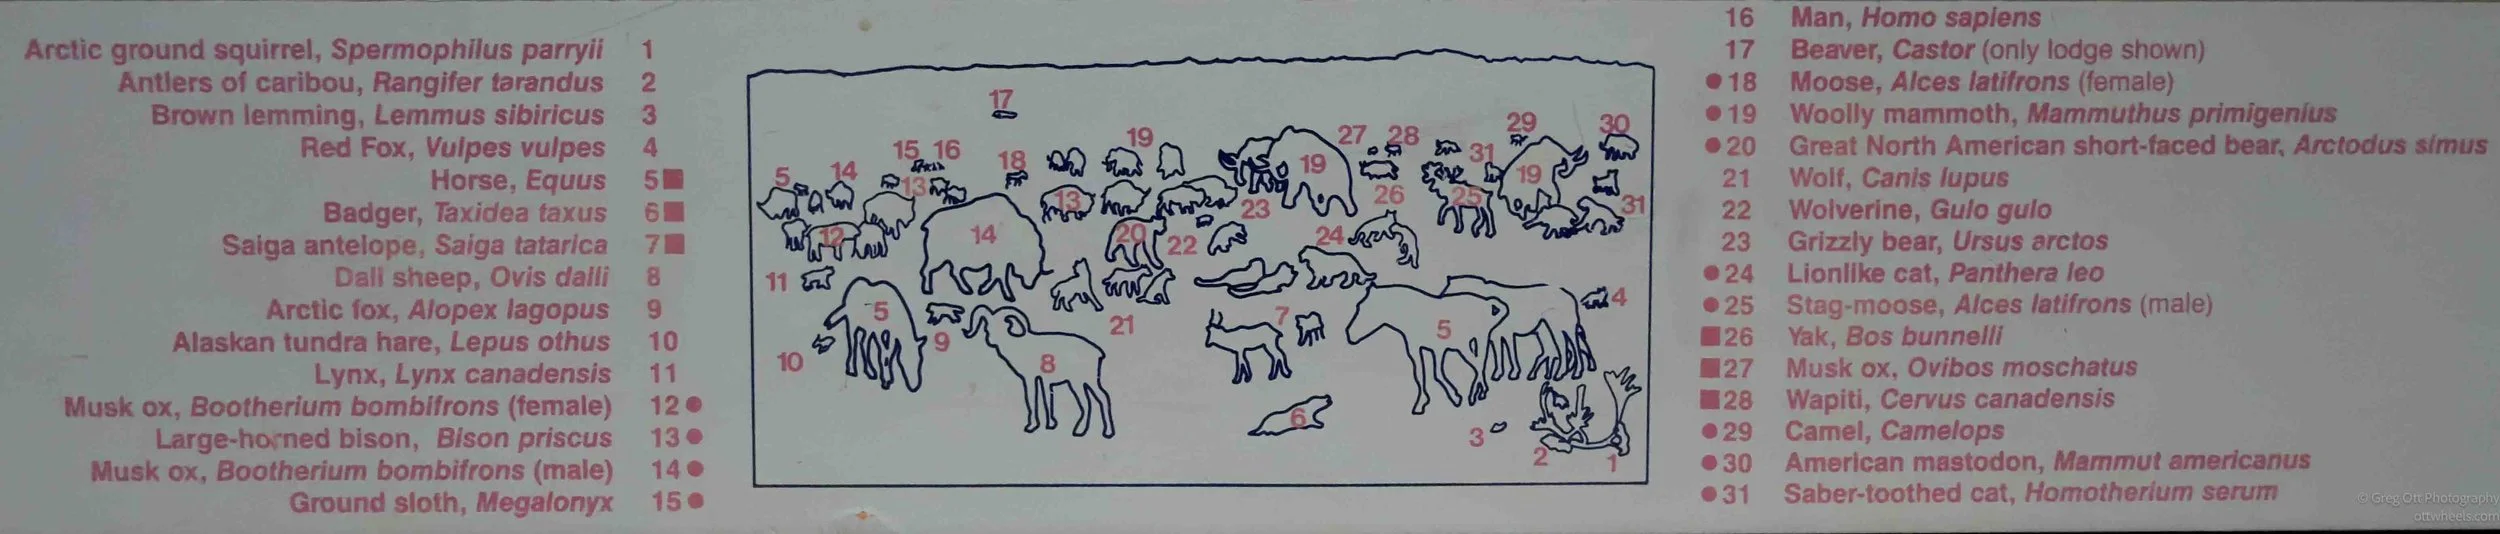 Arctic ground squirrel, Spermophilus parryii 1
Antlers of caribou, Rangifer tarandus 2
Brown lemming, Lemmus sibiricus 3
Red Fox, Vulpes vulpes 4
Horse, Equus 5■
Badger, Taxidea taxus 6■
Saiga antelope, Saiga tatarica 7■
Dall sheep, Ovis dalli 8
Arctic fox, Alopex lagopus 9
Alaskan tundra hare, Lepus othus 10
Lynx, Lynx canadensis 11
Musk ox, Bootherium bombifrons (female) 12●
Large-horned bison, Bison priscus 13●
Musk ox, Bootherium bombifrons (male) 14●
Ground sloth, Megalonyx 15●
17
29 30
15 16 19 27 28
5 14 13 18 19 31 19
13 26 25 31
12 14 20 22 23 24
11
5 9 21 7 5 4
10 8
6 3
2 1
16 Man, Homo sapiens
17 Beaver, Castor (only lodge shown)
●18 Moose, Alces latifrons (female)
●19 Woolly mammoth, Mammuthus primigenius
●20 Great North American short-faced bear, Arctodus simus
21 Wolf, Canis lupus
22 Wolverine, Gulo gulo
23 Grizzly bear, Ursus arctos
●24 Lionlike cat, Panthera leo
●25 Stag-moose, Alces latifrons (male)
■26 Yak, Bos bunnelli
■27 Musk ox, Ovibos moschatus
■28 Wapiti, Cervus canadensis
●29 Camel, Camelops
●30 American mastodon, Mammut americanus
●31 Saber-toothed cat, Homotherium serum
© Greg Ott Photography
ottwheels.com